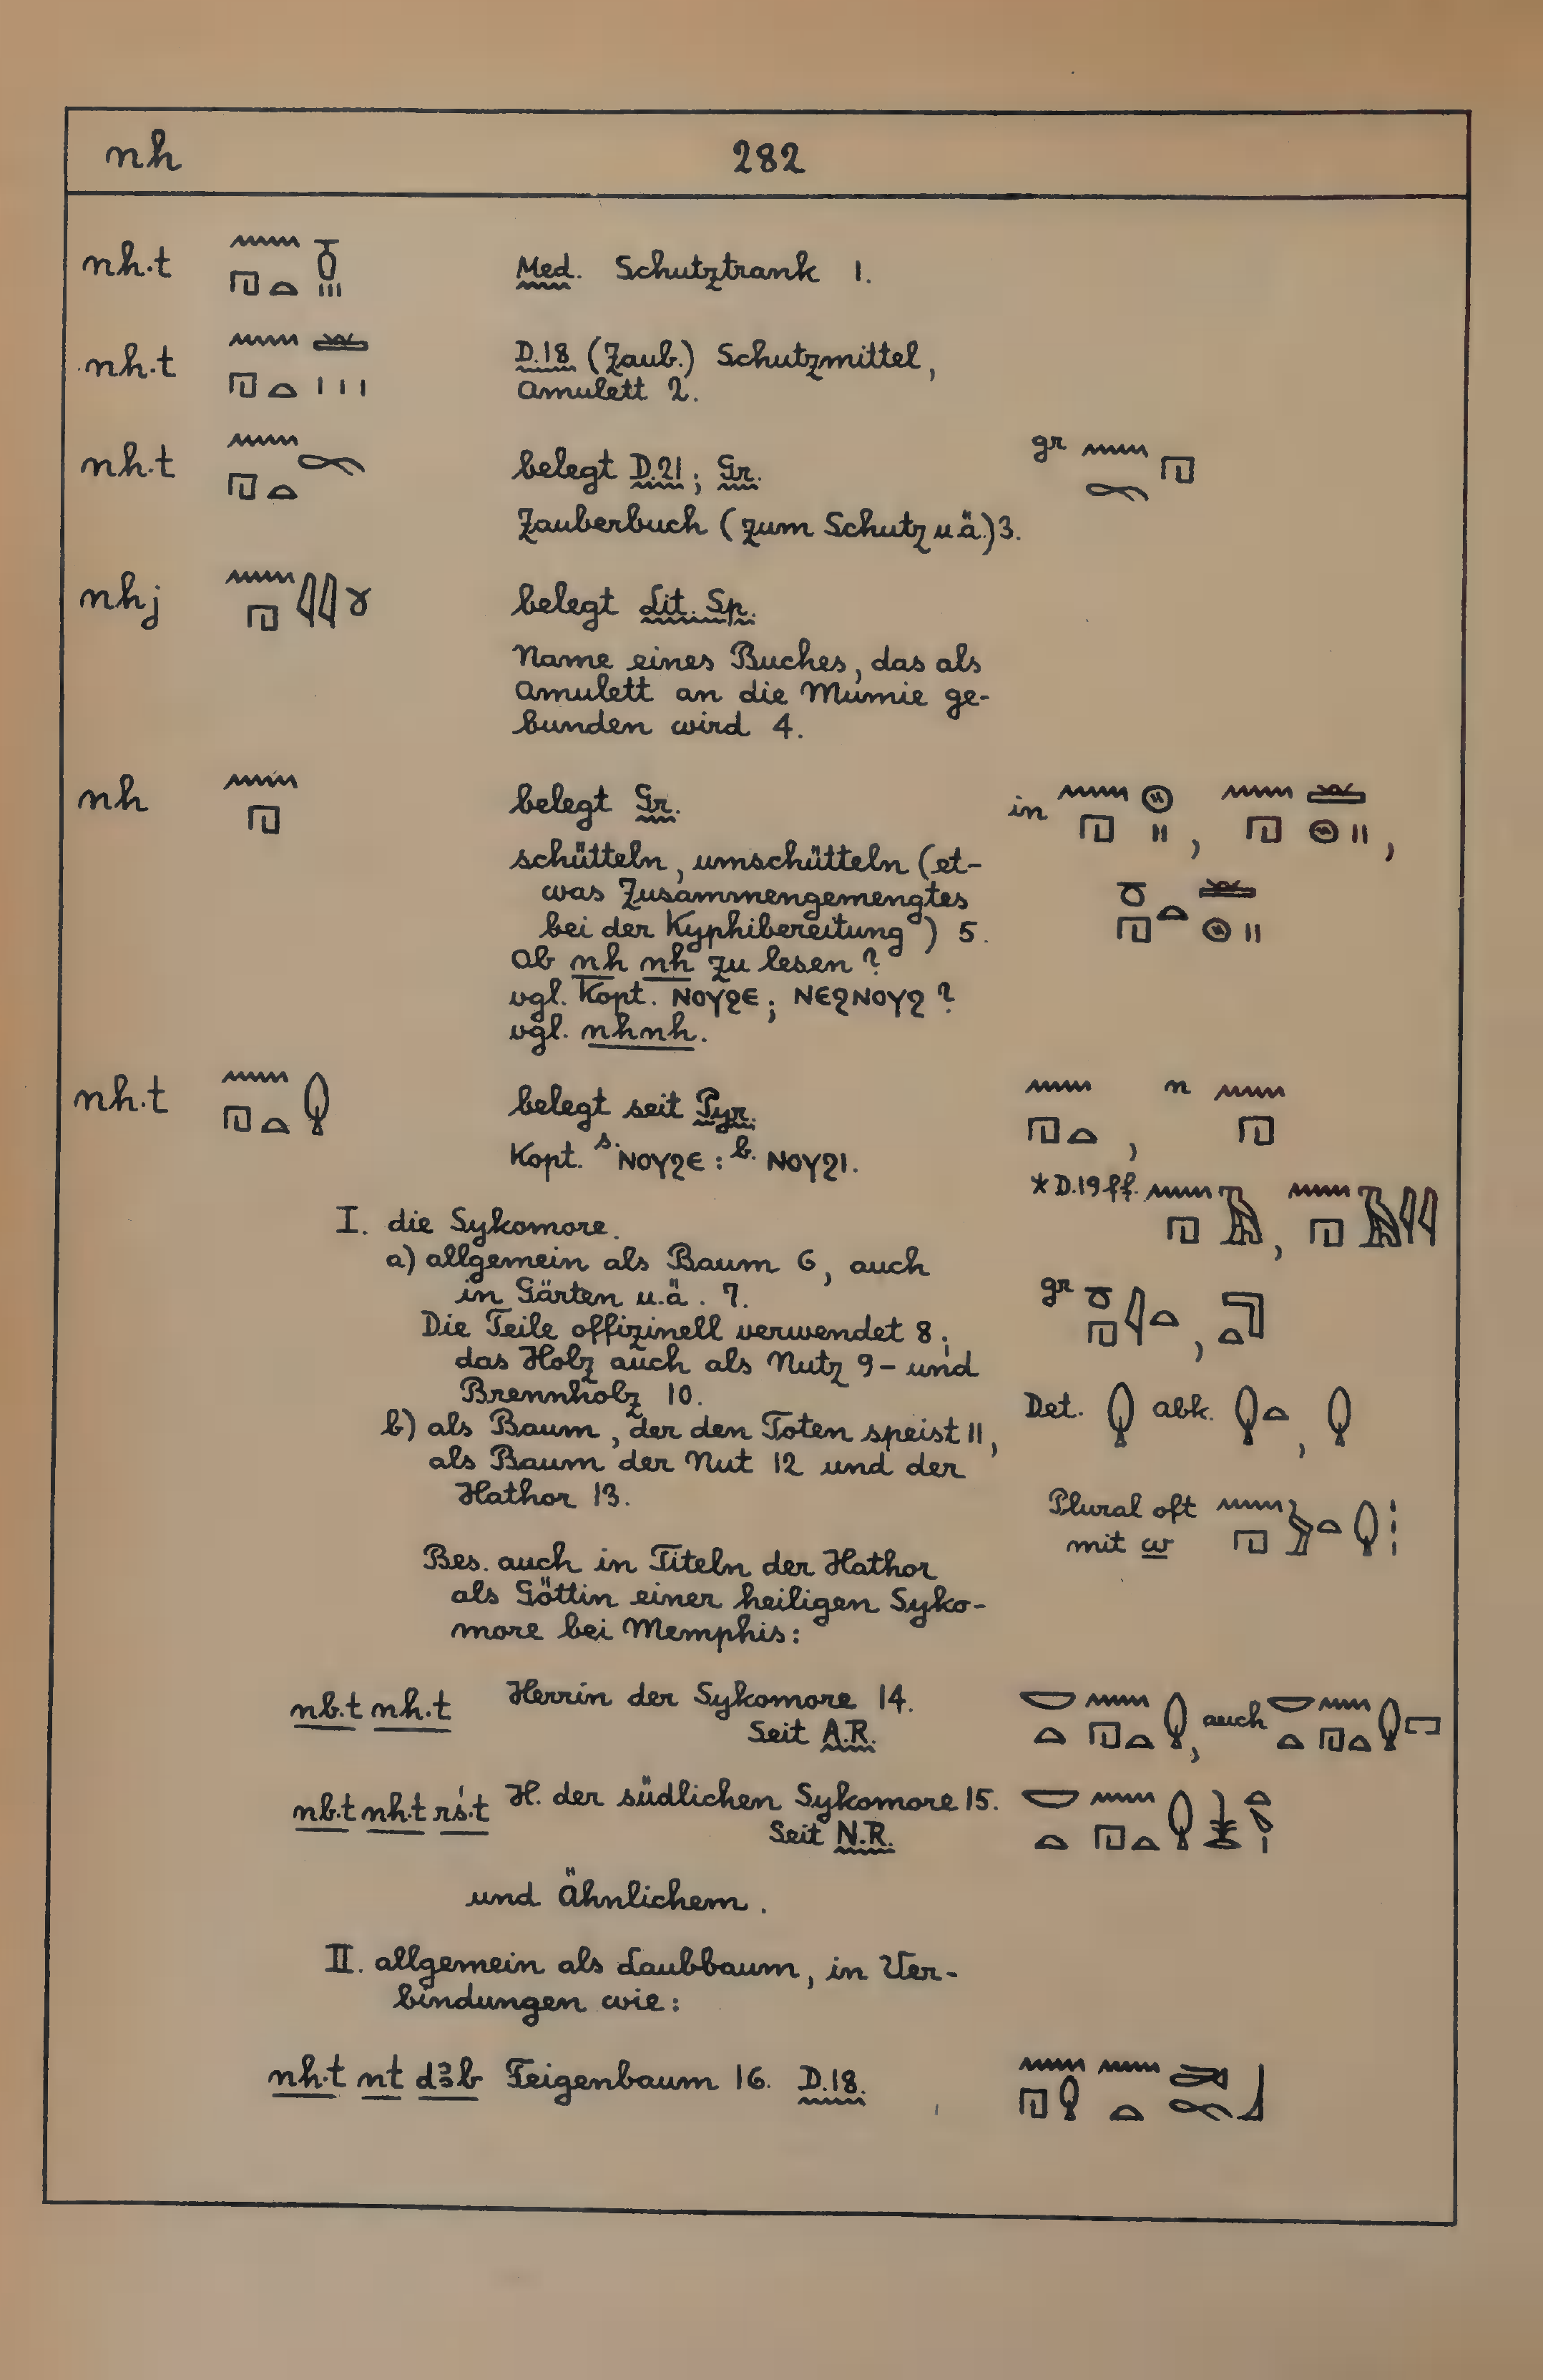 nh 282
nh.t Med. Schutztrank 1.
nh.t D.18 (Zaub.) Schutzmittel,
Amulett 2.
nh.t belegt D.21; Gr. gr
Zauberbuch (zum Schutz u.ä.) 3.
nhj belegt Lit. Sp.
Name eines Buches, das als
Amulett an die Mumie ge-
bunden wird 4.
nh belegt Gr. in
schütteln, umschütteln (et-
was Zusammengemengtes
bei der Kyphibereitung) 5.
Ob nh nh zu lesen?
vgl. Kopt. ⲛⲟⲩϩⲉ; ⲛⲉϩⲛⲟⲩϩ?
vgl. nhnh.
nh.t belegt seit Pyr. , n
Kopt. s. ⲛⲟⲩϩⲉ : b. ⲛⲟⲩϩⲓ.
* D.19 ff. ,
I. die Sykomore.
a) allgemein als Baum 6, auch
in Gärten u.ä. 7. gr ,
Die Teile offizinell verwendet 8;
das Holz auch als Nutz 9- und
Brennholz 10. Det. abk. ,
b) als Baum, der den Toten speist 11,
als Baum der Nut 12 und der
Hathor 13. Plural oft
mit w
Bes. auch in Titeln der Hathor
als Göttin einer heiligen Syko-
more bei Memphis:
nb.t nh.t Herrin der Sykomore 14. , auch
Seit A.R.
nb.t nh.t rś.t H. der südlichen Sykomore 15.
Seit N.R.
und Ähnlichem.
II. allgemein als Laubbaum, in Ver-
bindungen wie:
nh.t nt dꜣb Feigenbaum 16. D.18.